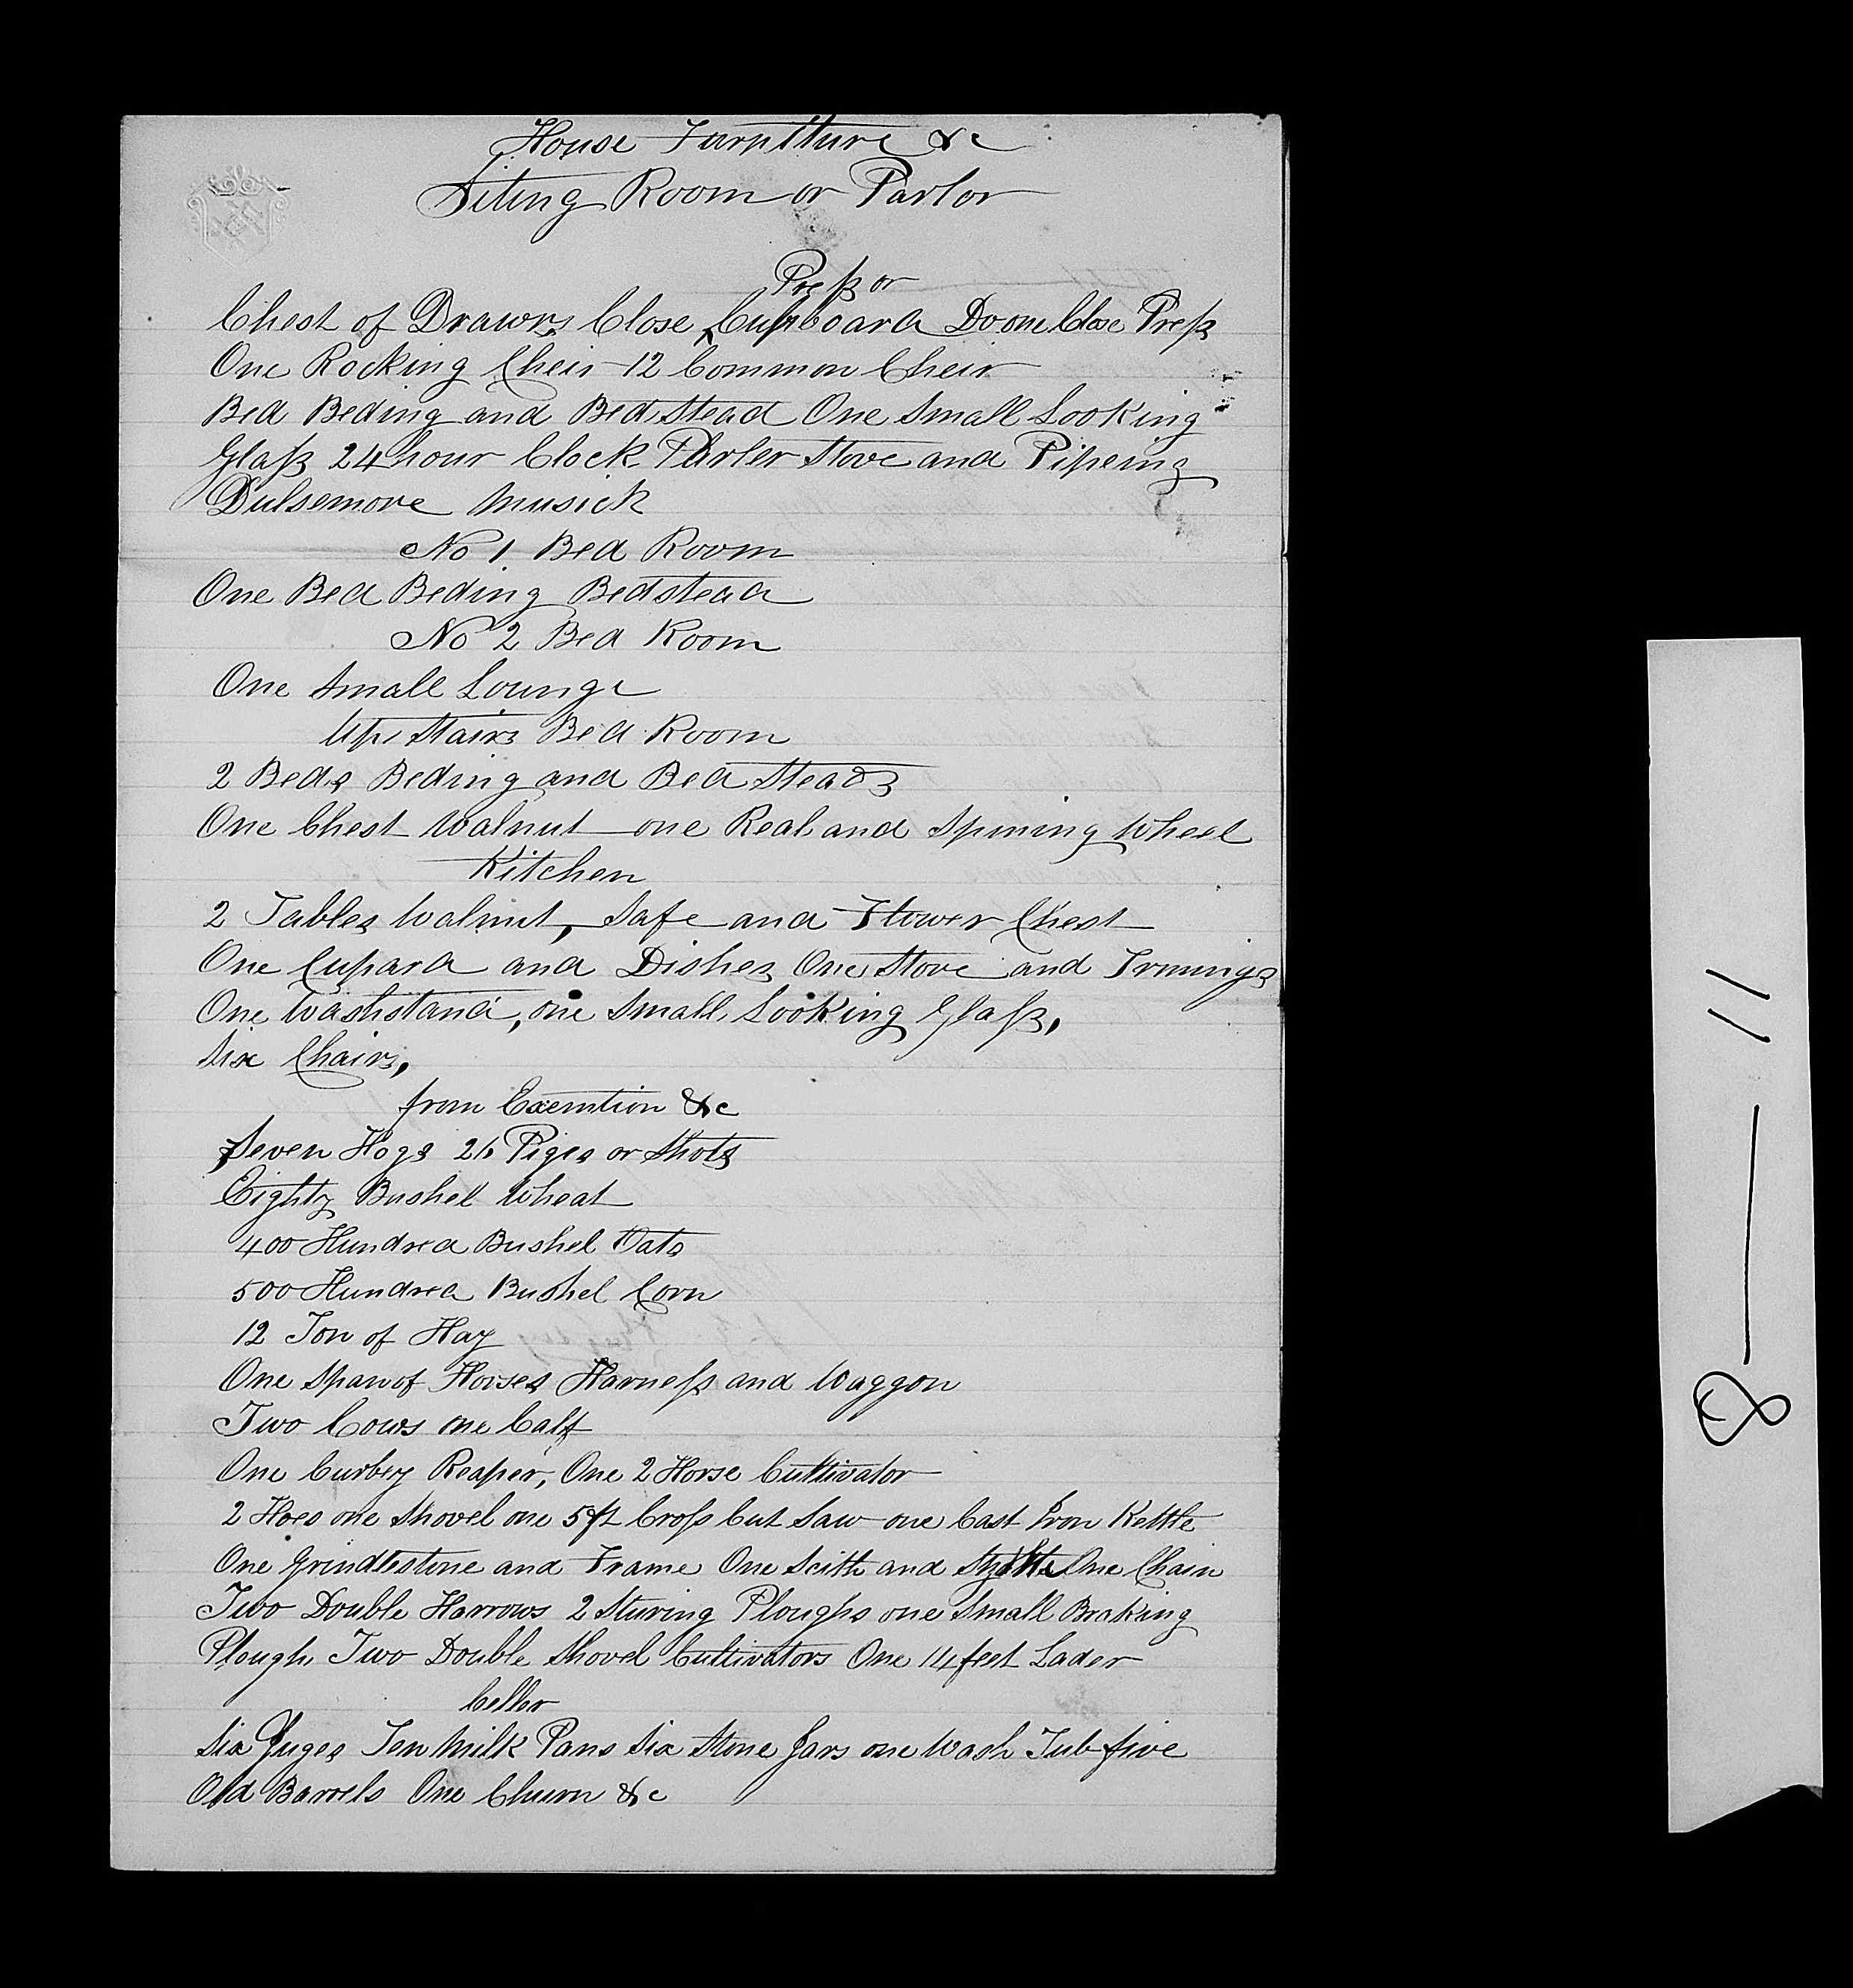 House Furniture &c
Siting Room or Parlor
Press or
Chest of Drawrs Close ^ Cupboard Do one Close Press
One Rocking Cheir 12 Common Cheir
Bed Beding and Bedstead One Small Looking
Glass 24 hour Clock Parler Stove and Pipeing
Dulsemore Musick
No 1 Bed Room
One Bed Beding Bedstead
No 2 Bed Room
One Small Lounge
Up Stairs Bed Room
2 Beds Beding and Bed Steads
One Chest Walnut one Real and Spining Wheel
Kitchen
2 Tables Walnut, Safe and Flower Chest
One Cupard and Dishes One Stove and
One Washstand, one Small Looking Glass,
Six Chairs,
from &c
Seven Hogs 26 Piges or Shots
Eighty Bushel Wheat
400 Hundred Bushel Oats
500 Hundred Bushel Corn
12 Ton of Hay
One Span of Horses Harness and Waggon
Two Cows one Calf
One Curbey Reaper, One 2 Horse Cultivator
2 Hoes one Shovel one 5 ft Cross Cut Saw one Cast Iron Kettle
One Grindlestone and Frame One Scith and One Chain
Two Double Harrows 2 Sturing Ploughs one Small Braking
Plough Two Double Shovel Cultivators One 14 feet Lader
Celler
Six Juges Ten Milk Pans Six Stone Jars one Wash Tub five
Old Barrels One Churn &c
8 — 11